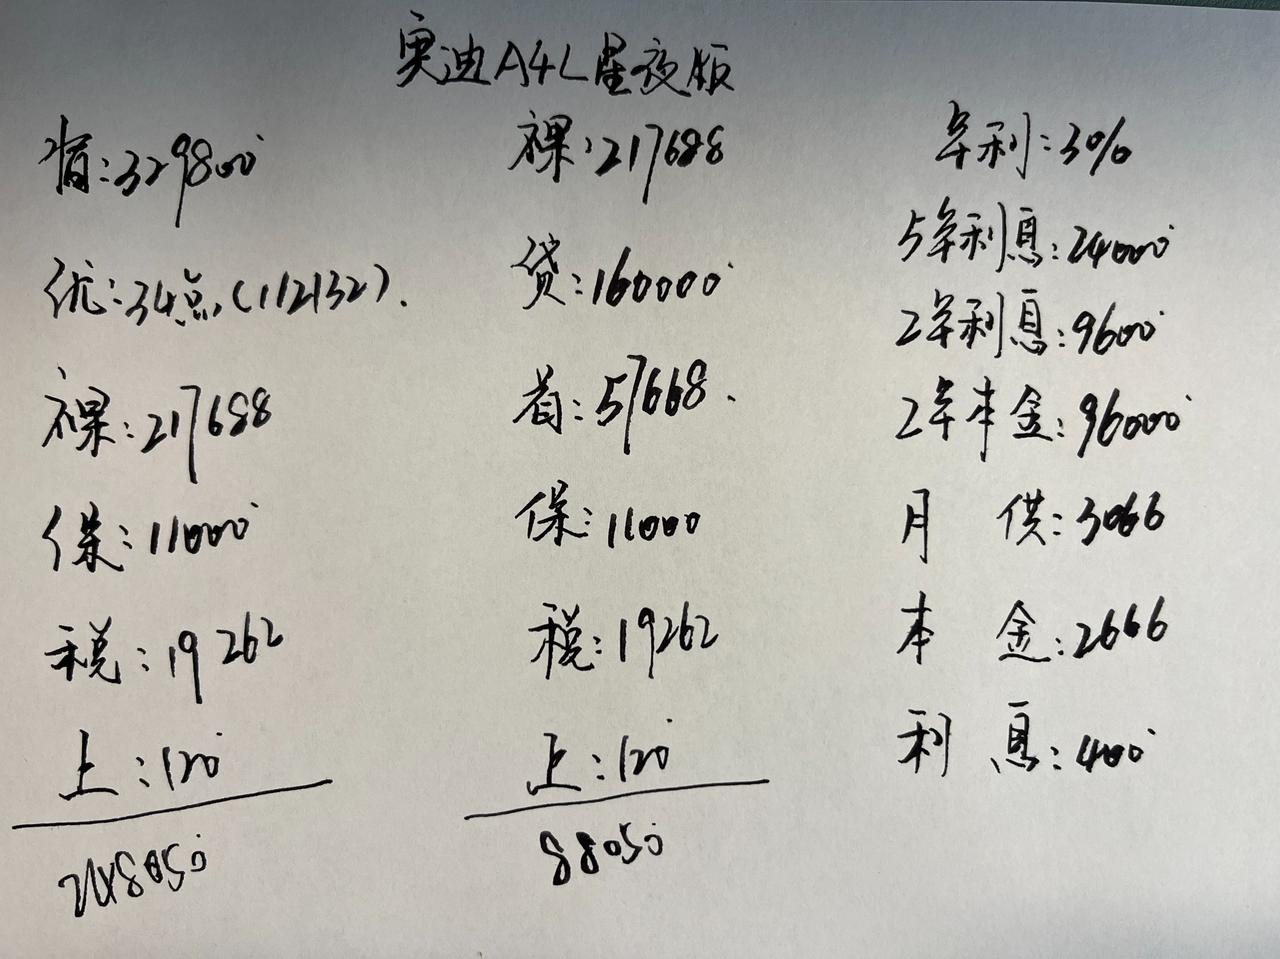 奥迪A4L星夜版
指:329800
优:34点(112132).
裸:217688
保:11000
税:19262
上:120
248050
裸:217688
贷:160000
首:57668.
保:11000
税:19262
上:120
88050
年利:3%
5年利息:24000
2年利息:9600
2年本金:96000
月 供:3066
本 金:2666
利 息:400